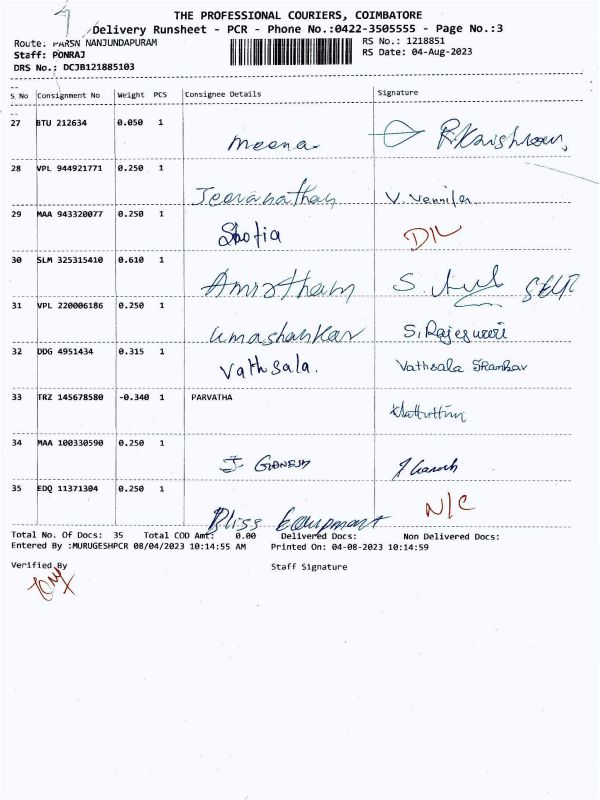 THE PROFESSIONAL COURIERS, COIMBATORE
Delivery Runsheet - PCR - Phone No.:0422-3505555 - Page No.:3
Route: NANJUNDAPURAM RS No.: 1218851
Staff: PONRAJ RS Date: 04-Aug-2023
DRS No.: DCJB121885103
S No Consignment No Weight PCS Consignee Details Signature
27 BTU 212634 0.050 1
meena
28 VPL 944921771 0.250 1
Jeevanathan V. Vennila
29 MAA 943320077 0.250 1
Shofia D/L
30 SLM 325315410 0.610 1
Amirtham S. Self
31 VPL 220006186 0.250 1
Umashankar S. Rajeswari
32 DDG 4951434 0.315 1
Vathsala. Vathsala Shankar
33 TRZ 145678580 -0.340 1 PARVATHA
34 MAA 100330590 0.250 1
J. GANESH J. Ganesh
35 EDQ 11371304 0.250 1
Bliss Equipment N/C
Total No. Of Docs: 35 Total COD Amt: 0.00 Delivered Docs: Non Delivered Docs:
Entered By :MURUGESHPCR 08/04/2023 10:14:55 AM Printed On: 04-08-2023 10:14:59
Verified By Staff Signature